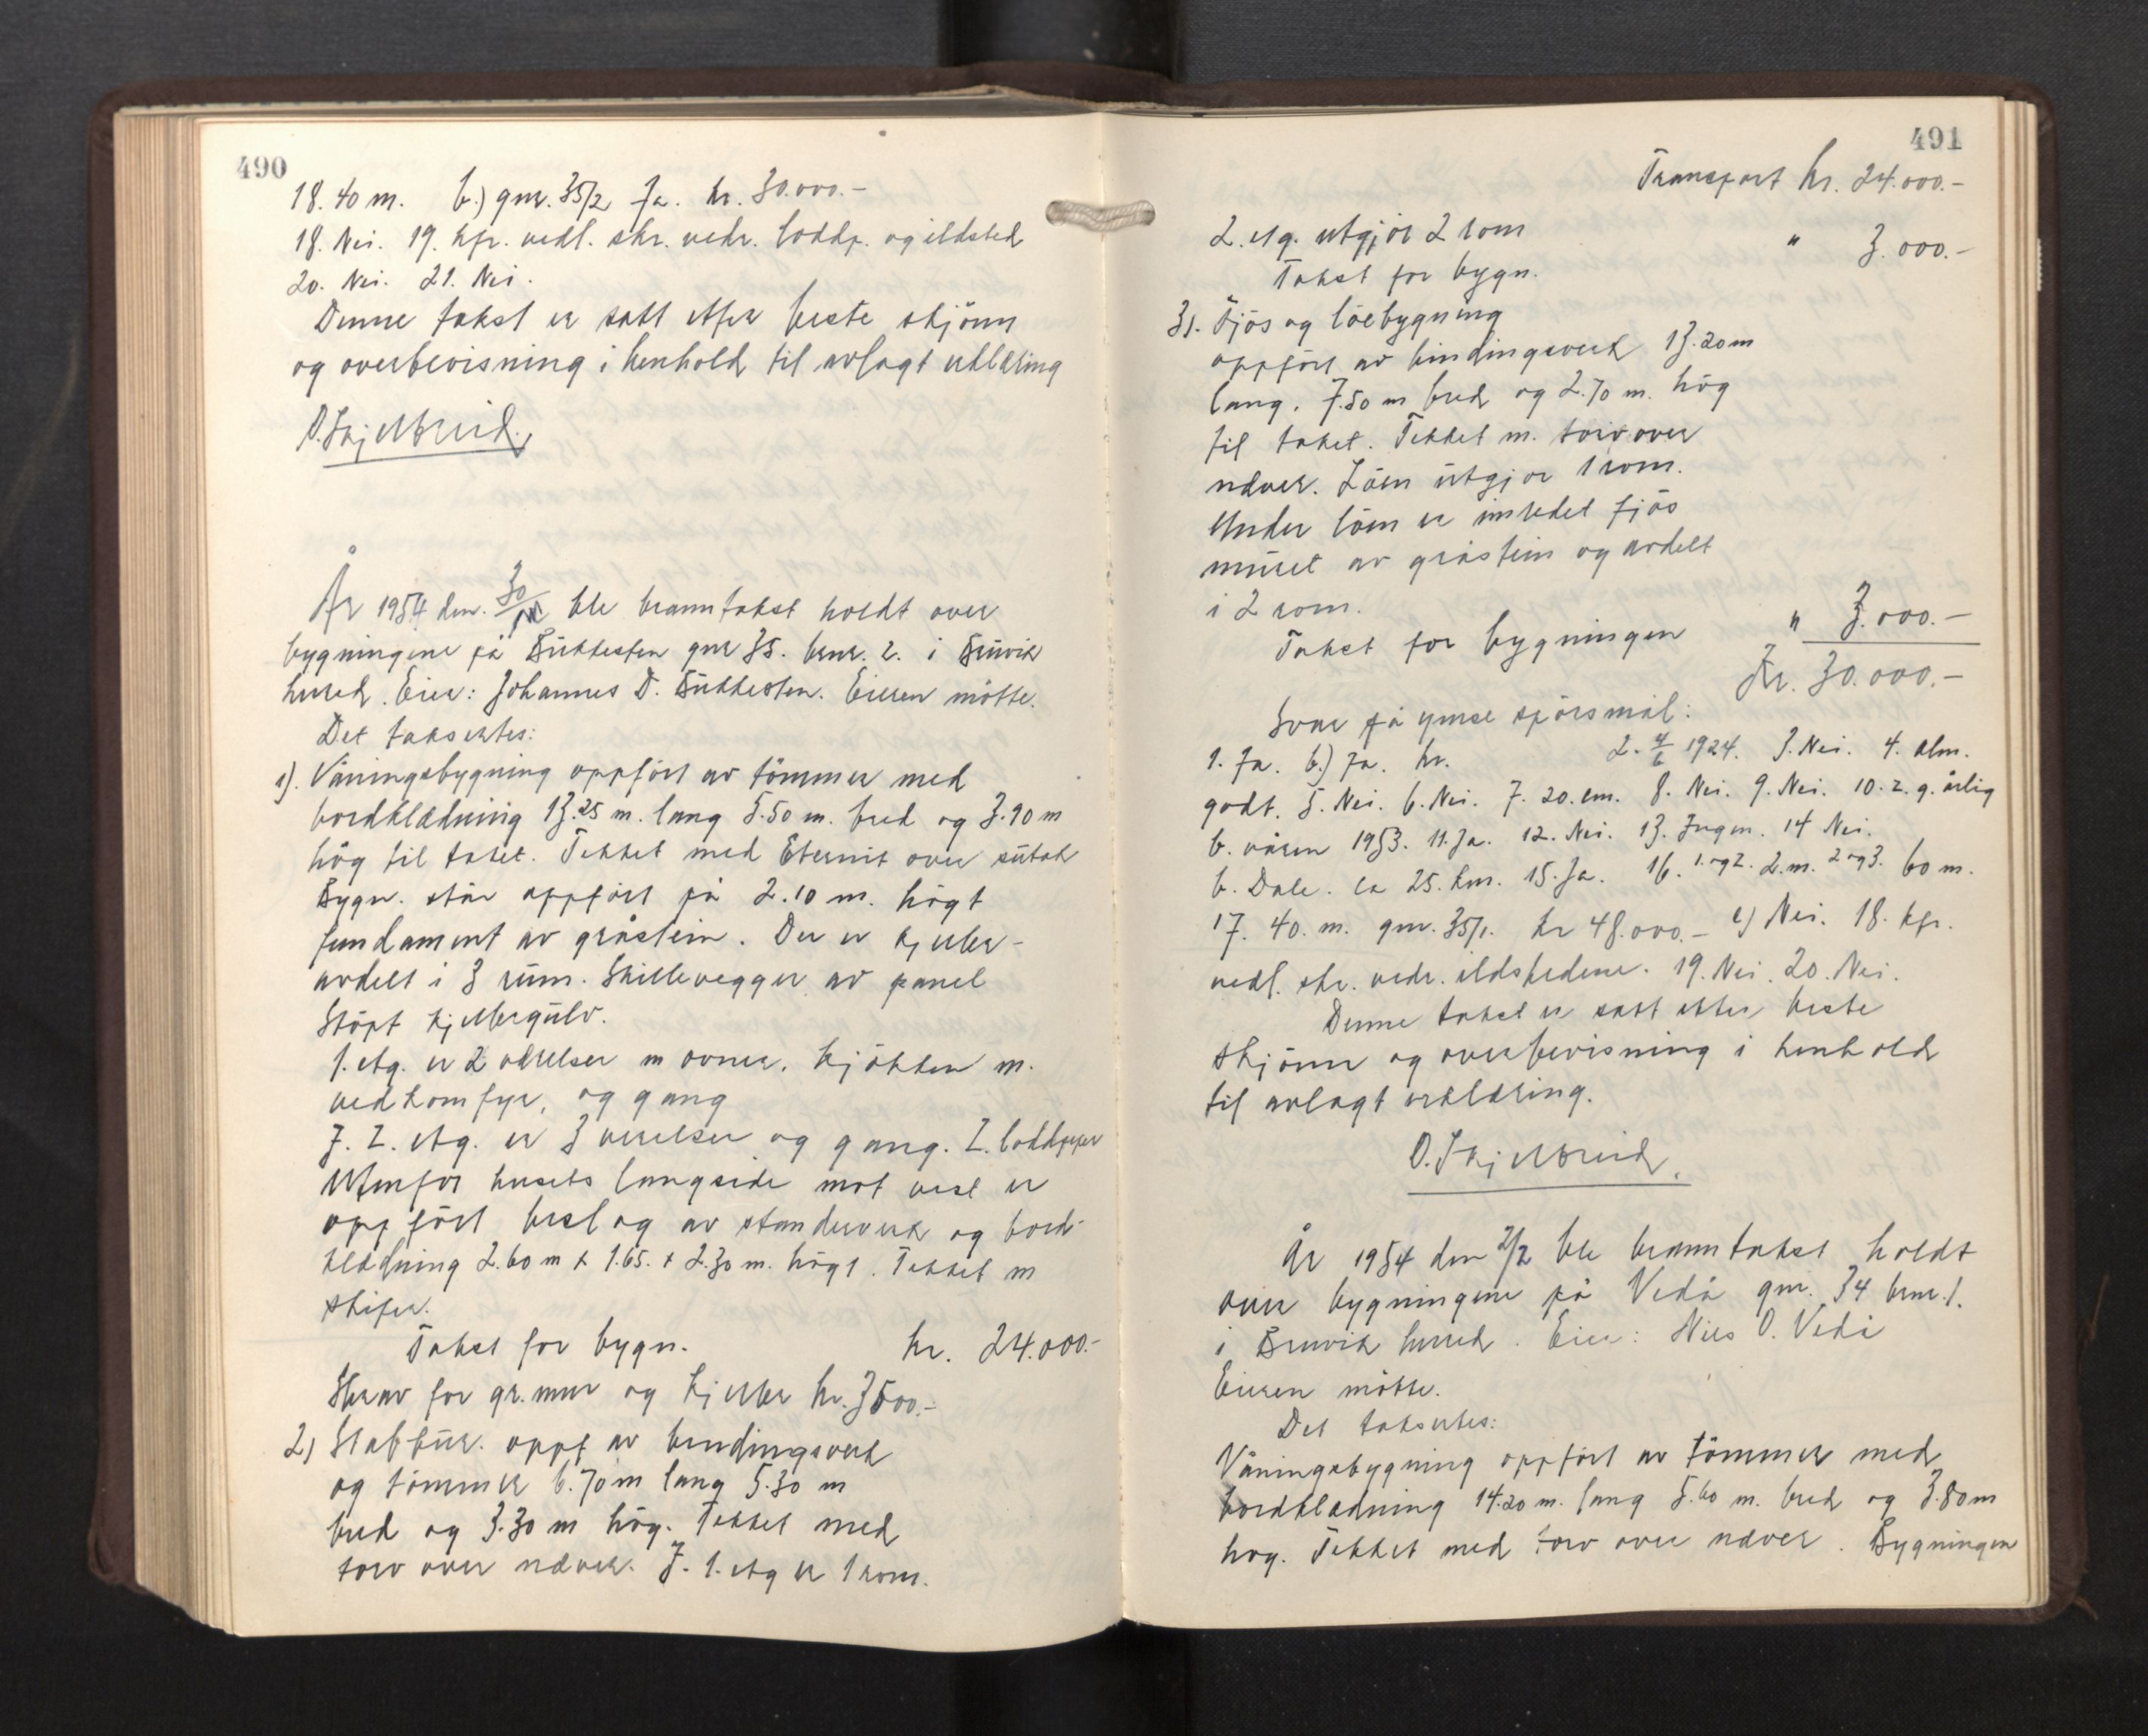 490
18. 40 m. b.) gnr. 35/2 Ja. kr. 30.000.-
18. Nei. 19. kfr. vedl. skr. vedr. loddp. og ildsted
20. Nei. 21. Nei.
Denne takst er satt etter beste skjönn
og overbevisning i henhold til avlagt erklæring
O. Skjellbreid.
År 1954 den. 30/ ble branntakst holdt over
bygningene på Bukkesten gnr 35. bnr. 2. i Bruvik
herred. Eier: Johannes D. Bukkesten. Eieren mötte.
Det taksertes:
1). Våningsbygning oppfört av tömmer med
bordklædning 13.25 m. lang 5.50 m. bred og 3.90 m
hög til taket. Tekket med Eternit over sutak
Bygn. står oppfört på 2.10 m. högt
fundament av gråstein. Der er kjeller-
avdelt i 3 rum. Skillevegger av panel
Stöpt kjellergulv.
1. etg. er 2 værelser m ovner, kjökken m.
vedkomfyr, og gang
J. 2. etg. er 3 værelser og gang. 2. loddpiper
Utenfor husets langside mot vest er
oppfört beslag av standerverk og bord-
klædning 2.60 m x 1.65. x 2.30 m. högt. Tekket m
skifer.
Takst for bygn. kr. 24.000.-
Herav for gr.mur og kjeller kr. 3500.-
2) Stabbur. oppf av bindingsverk
og tömmer 6.70 m lang 5.30 m
bred og 3.30 m hög. Tekket med
torv over næver. J. 1. etg er 1 rom.
491
Transport kr. 24.000.-
2. etg. utgjör 2 rom
Takst for bygn. " 3.000.-
3). Fjös og löebygning
oppfört av bindingsverk 13.20 m
lang, 7.50 m bred og 2.70 m. hög
til taket. Tekket m. torv over
næver. Löen utgjör 1 rom.
Under löen er innredet fjös
muret av gråstein og avdelt
i 2 rom.
Takst for bygningen " 3.000.-
Kr. 30.000.-
Svar på ymse spörsmål:
1. Ja. b.) Ja. kr. 2. 4/6 1924. 3. Nei. 4. alm.
godt. 5. Nei. 6. Nei. 7. 20. cm. 8. Nei. 9. Nei. 10. 2. g. årlig
b. våren 1953. 11. Ja. 12. Nei. 13. Ingen. 14 Nei.
b. Dale. ca 25. km. 15. Ja. 16. 1. og 2. 2. m. 2 og 3. 60 m.
17. 40. m. gnr. 35/1. kr 48.000.- c) Nei. 18. kfr.
vedl. skr. vedr. ildstedene. 19. Nei. 20. Nei.
Denne takst er satt etter beste
skjönn og overbevisning i henhold
til avlagt erklæring.
O. Skjellbreid.
År 1954 den 2/2 ble branntakst holdt
over bygningene på Vedå gnr. 34 bnr. 1.
i Bruvik herred. Eier: Nils O. Vedå
Eieren mötte.
Det taksertes:
Våningsbygning oppfört av tömmer med
bordklædning 14.20 m. lang 5.60 m. bred og 3.80 m
hög. Tekket med torv over næver. Bygningen